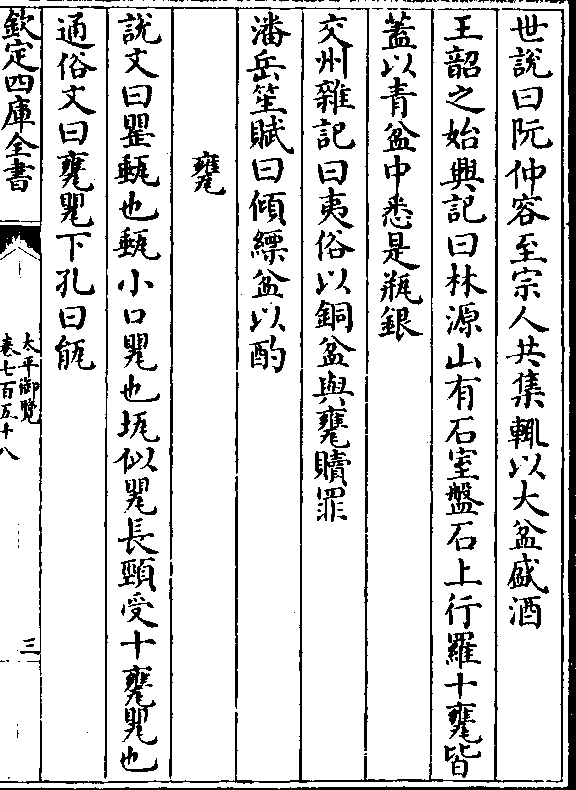 世說曰阮仲容至宗人共集輒以大盆盛酒
王韶之始興記曰林源山有石室盤石上行羅十甕皆
蓋以青盆中悉是瓶銀
交州雜記曰夷俗以銅盆與甕贖罪
潘岳笙賦曰傾縹盆以酌
甕
說文曰罌㼚也㼚小口罌也瓨似罌長頸受十甕罌也
通俗文曰甕罌下孔曰瓳
欽定四庫全書
太平御覽
卷七百五十八
三